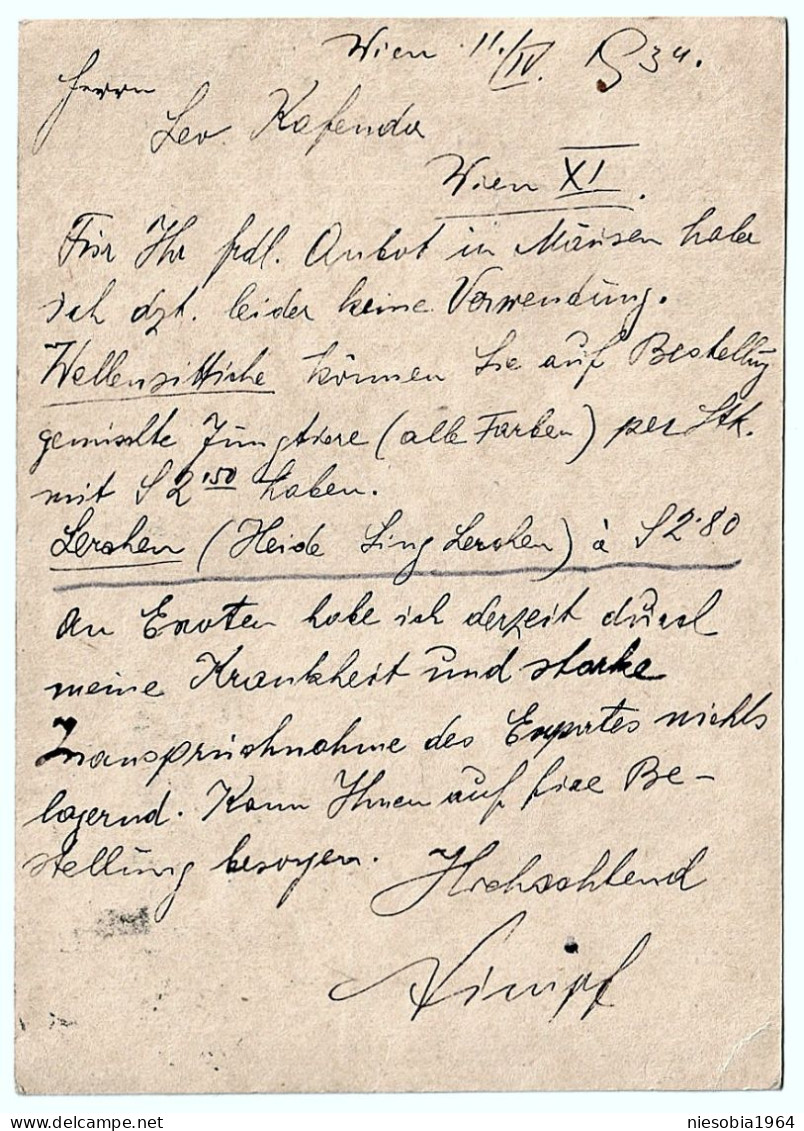 Wien 11./IV. 1934.
Herrn
Leo Kafenda
Wien XI.
Für Ihr frdl. Anbot in Mäusen habe
ich dzt. leider keine Verwendung.
Wellensittiche können Sie auf Bestellung
gemischte Jungtiere (alle Farben) per Stk.
mit S 2.50 haben.
Lerchen (Heide Sing Lerchen) à S 2.80
An Exoten habe ich derzeit durch
meine Krankheit und starke
Inanspruchnahme des Exportes nichts
lagernd. Kann Ihnen auf fixe Be-
stellung besorgen.
Hochachtend
niesobia1964